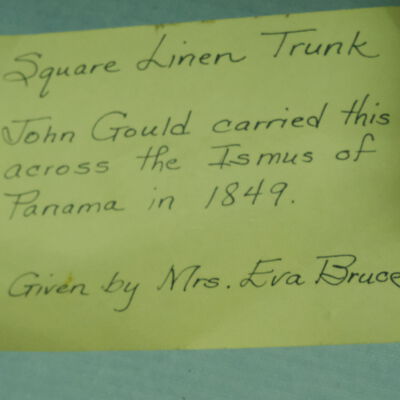 Square Linen Trunk
John Gould carried this
across the Ismus of
Panama in 1849.
Given by Mrs. Eva Bruce